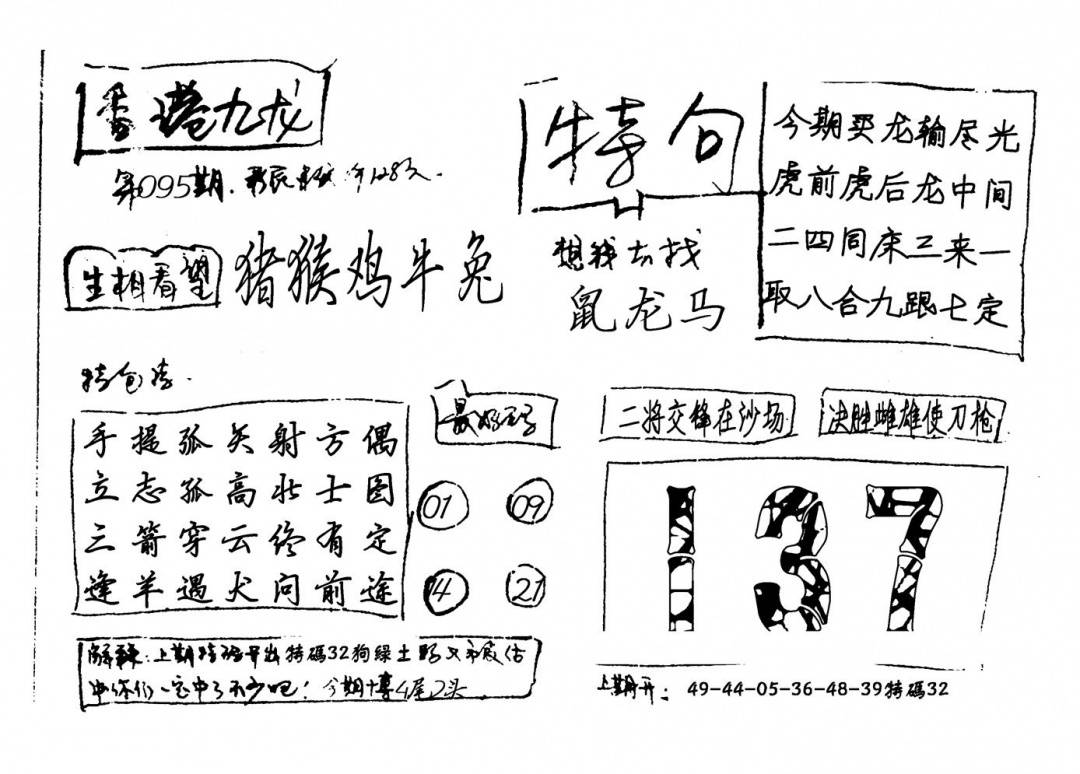 香港九龙
第095期.
生相看望
猪猴鸡牛兔
特句
想钱去找
鼠龙马
今期买龙输尽光
虎前虎后龙中间
二四同床三来一
取八合九跟七定
特包诗.
手提孤矢射方偶
立志孤高壮士图
三箭穿云终有定
逢羊遇犬问前途
01 09
14 21
二将交锋在沙场
决胜雌雄使刀枪
137
解释:上期特码开出特碼32狗绿土
中你们一定中了不少吧!今期博4尾2头
上期开: 49-44-05-36-48-39特碼32